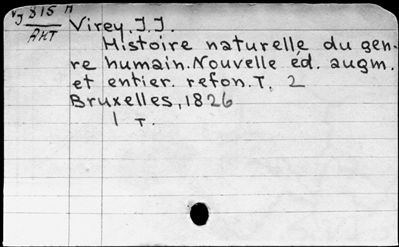 Virey, J.J.
Histoire naturelle du gen-
re humain. Nouvelle éd. augm.
et entier. refon. T. 2
Bruxelles, 1826
1 T.